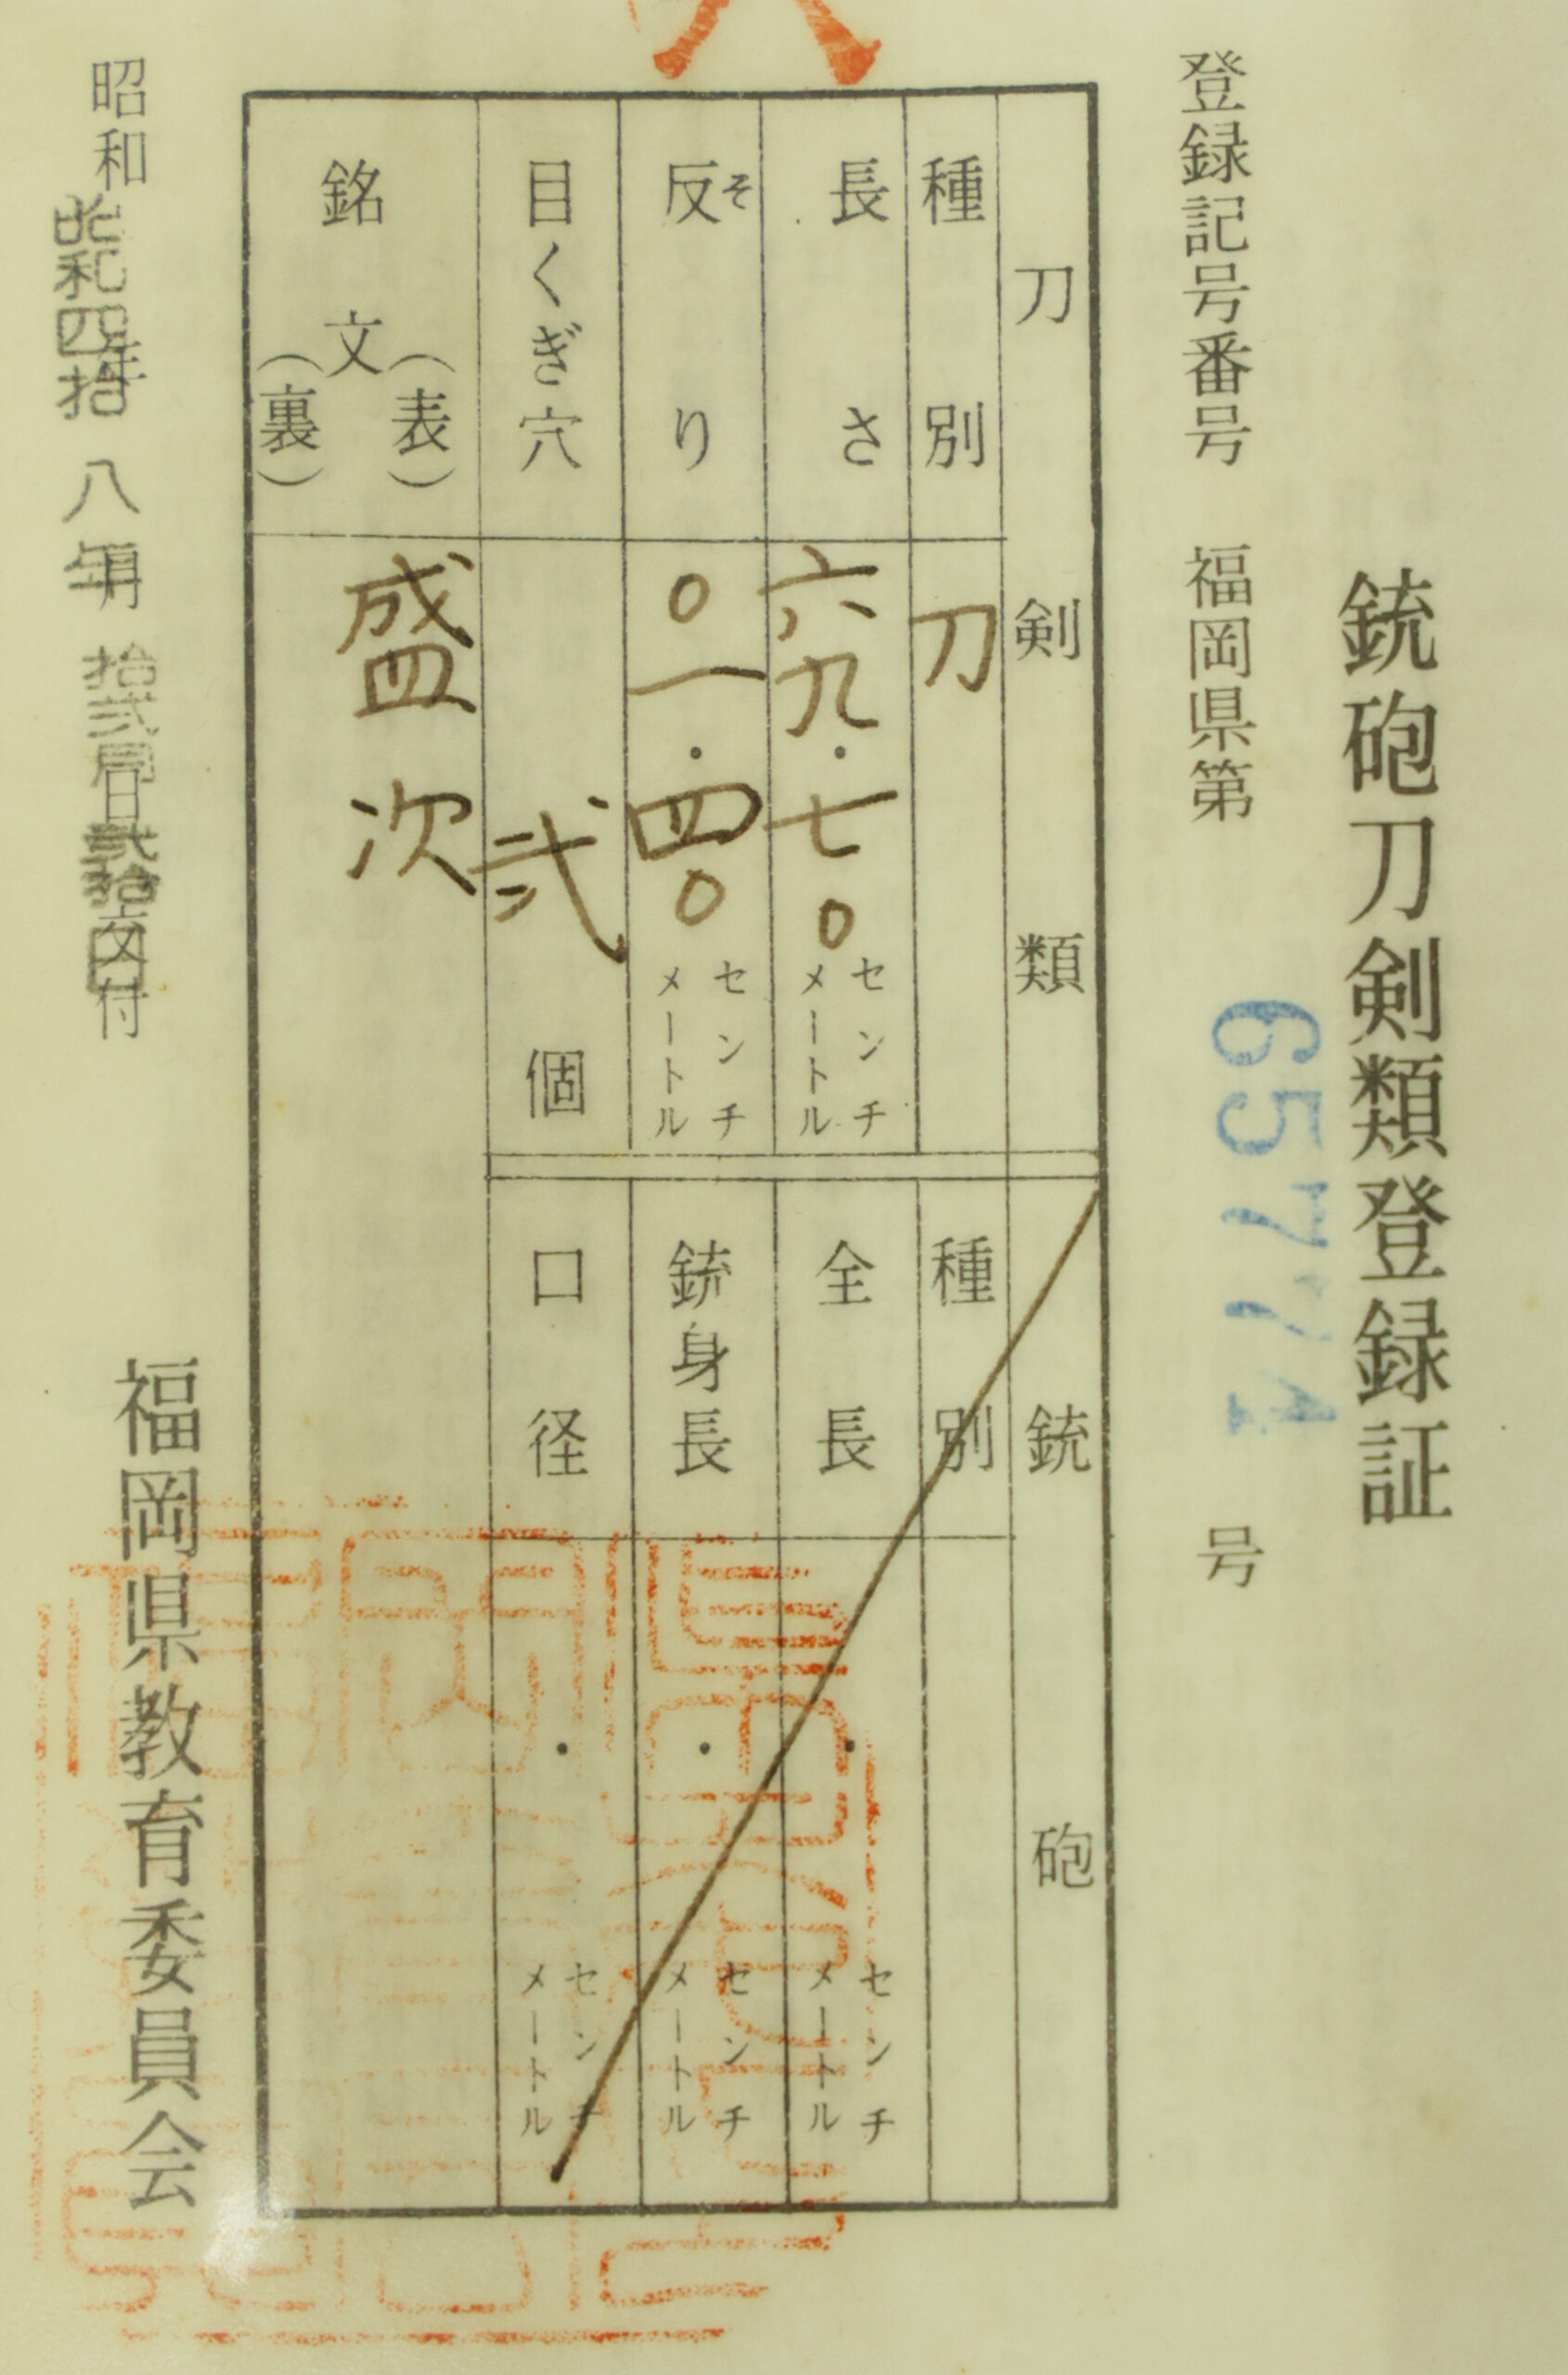 銃砲刀剣類登録証
登録記号番号 福岡県第 65774 号
刀剣類
種別 刀
長さ 六九.七〇 センチメートル
反り そ 〇一.四〇 センチメートル
目くぎ穴 弐 個
銘文 (表) 盛次
(裏)
銃砲
種別
全長 . センチメートル
銃身長 . センチメートル
口径 . センチメートル
昭和 年 月 日交付
昭和四拾八年拾弐月弐拾四日
福岡県教育委員会